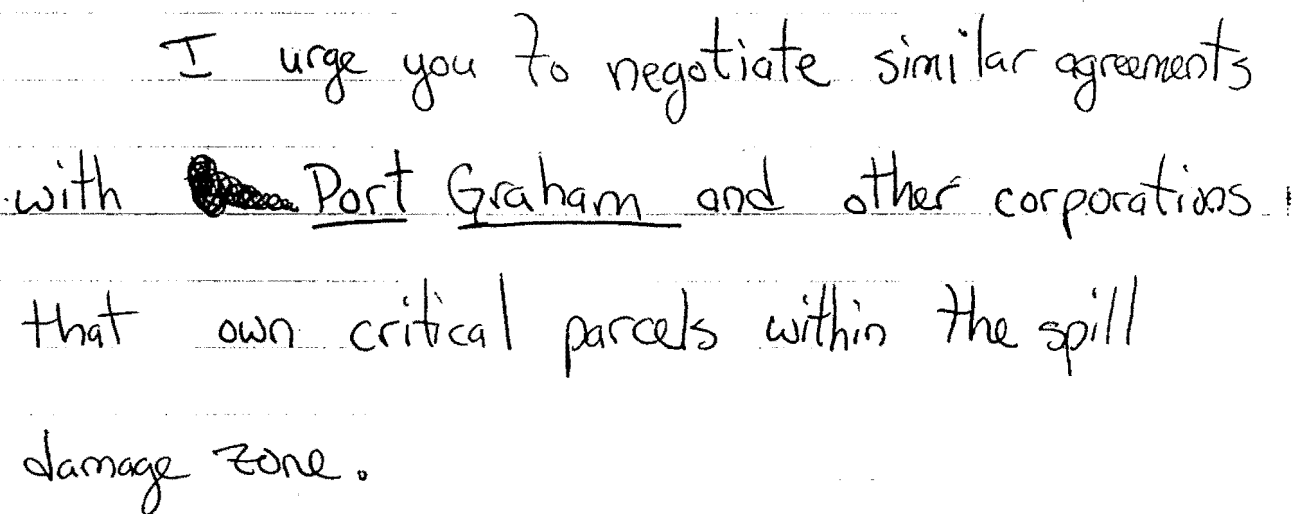 I urge you to negotiate similar agreements
with Port Graham and other corporations
that own critical parcels within the spill
damage zone.